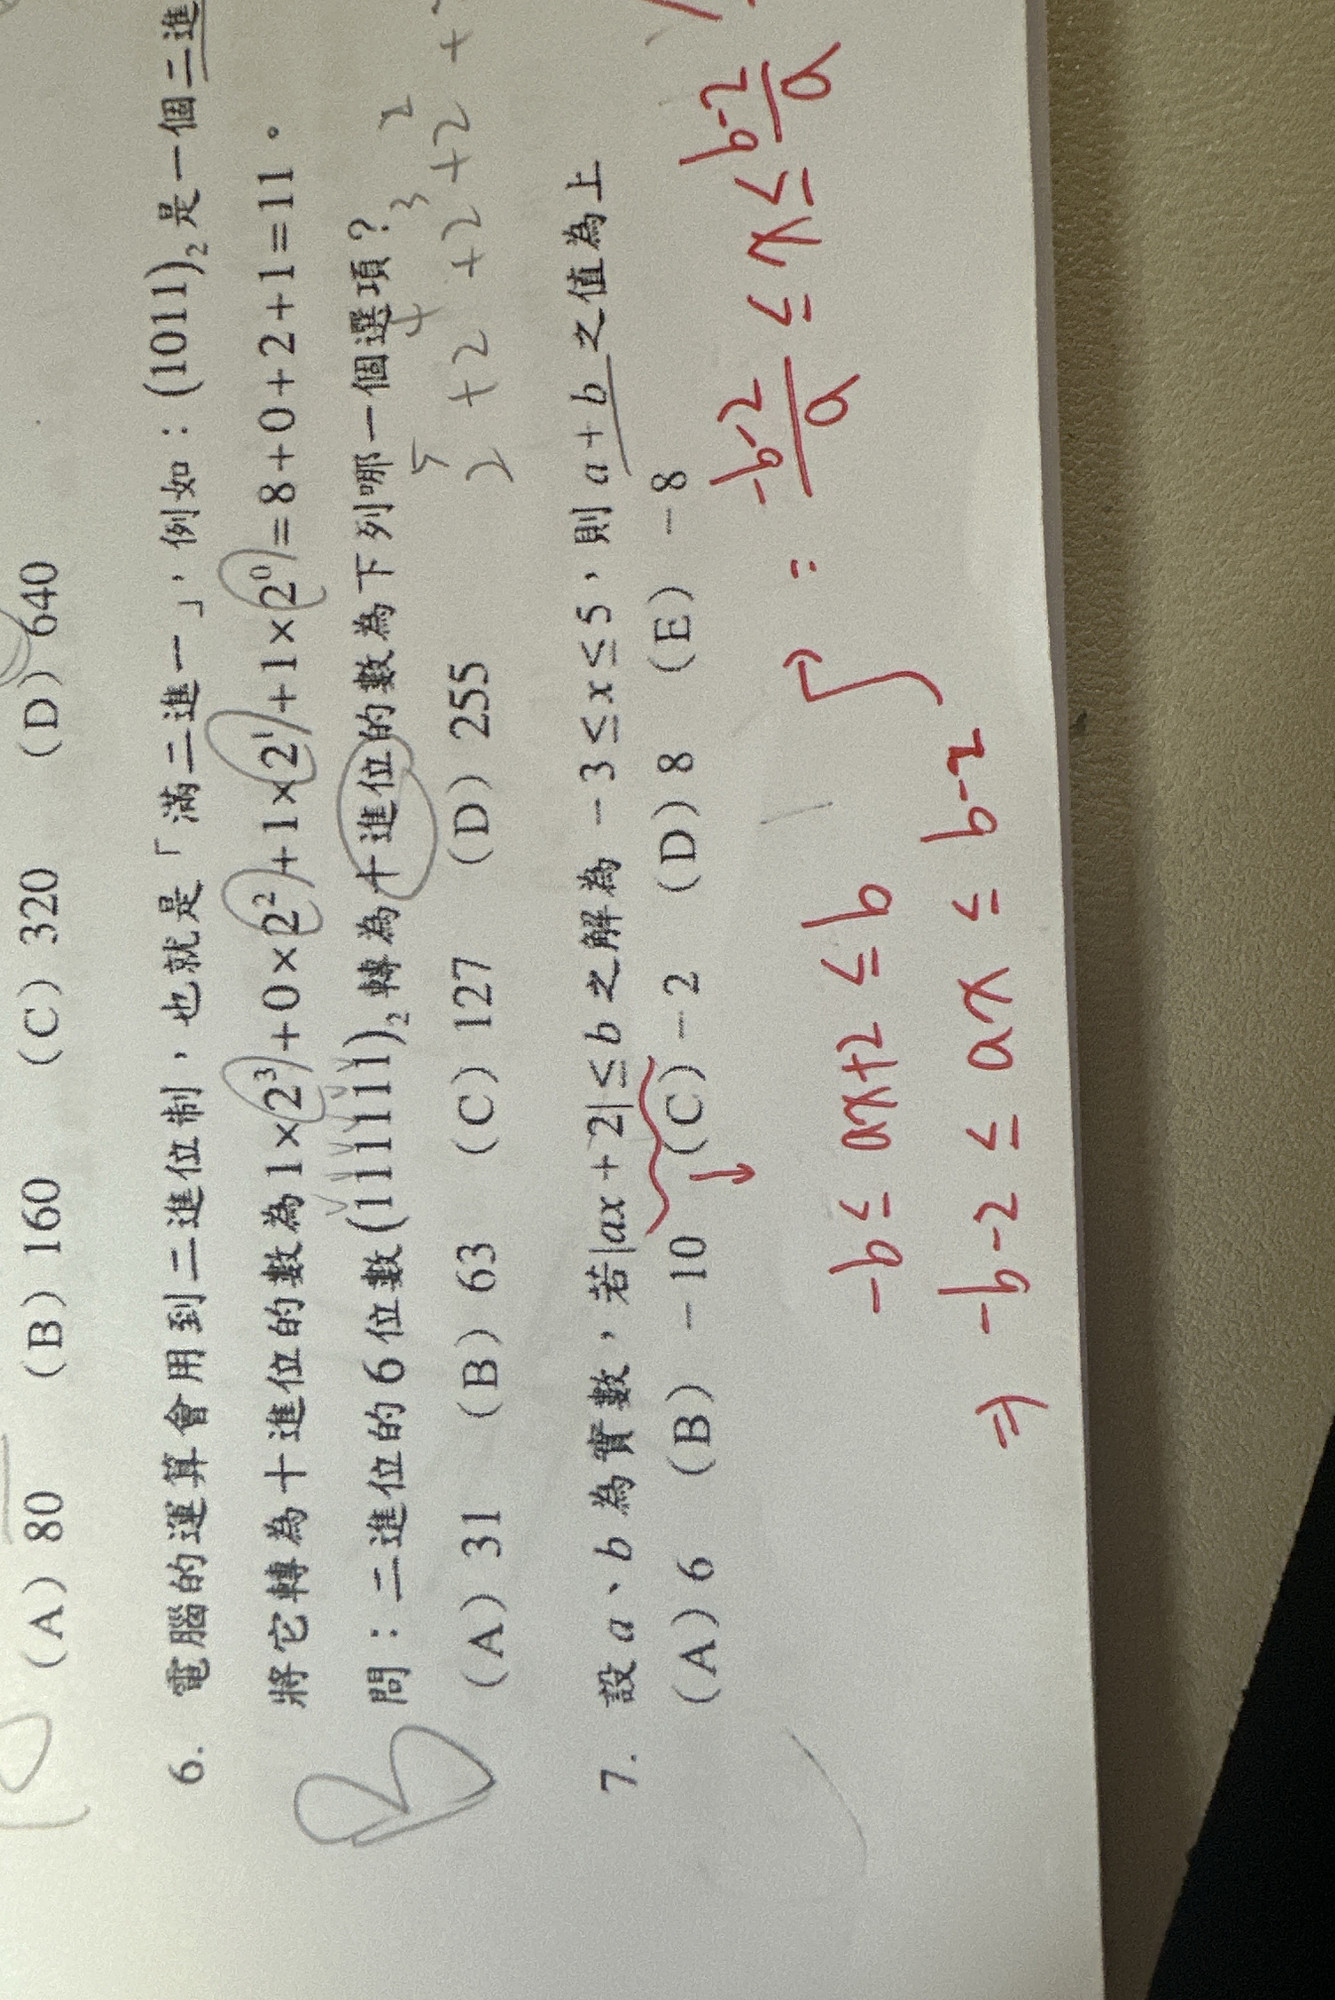 (A) 80 (B) 160 (C) 320 (D) 640
6. 電腦的運算會用到二進位制,也就是「滿二進一」,例如:(1011)₂是一個二進
將它轉為十進位的數為1×2³+0×2²+1×2¹+1×2⁰=8+0+2+1=11。
問:二進位的6位數(111111)₂轉為十進位的數為下列哪一個選項?
B
(A) 31 (B) 63 (C) 127 (D) 255
2⁵+2⁴+2³+2²+2+
7. 設a、b為實數,若|ax+2|≤b之解為-3≤x≤5,則a+b之值為上
(A) 6 (B) -10 (C) -2 (D) 8 (E) -8
-b≤ax+2≤b
⇒ -b-2≤ax≤b-2
: -b-2/a ≤x≤ b-2/a